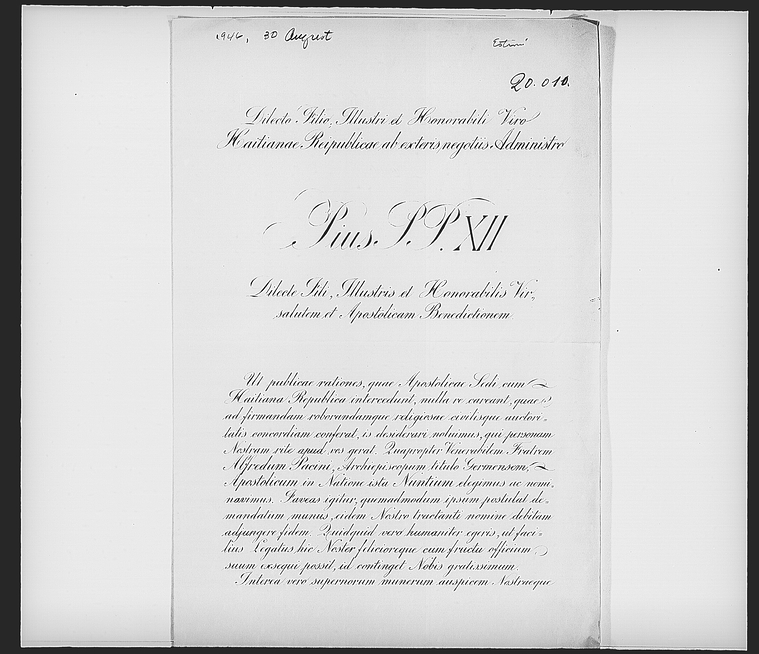 1946, 30 August
20.010.
Dilecto Filio, Illustri et Honorabili Viro
Haitianae Reipublicae ab exteris negotiis Administro
Pius P.P. XII
Dilecte Fili, Illustris et Honorabilis Vir,
salutem et Apostolicam Benedictionem
Ut publicae rationes, quae Apostolicae Sedi cum
Haitiana Republica intercedunt, nulla re careant, quae
ad firmandam roborandamque religiosae civilisque auctori-
tatis concordiam conferat, is desiderari noluimus, qui personam
Nostram rite apud vos gerat. Quapropter Venerabilem Fratrem
Alfredum Pacini, Archiepiscopum titulo Germensem,
Apostolicum in Natione ista Nuntium elegimus ac nomi-
navimus. Faveas igitur, quemadmodum ipsum postulat de-
mandatum munus, eidem Nostro tractanti nomine debitam
adjungere fidem. Quidquid vero humaniter egeris, ut faci-
lius Legatus hic Noster felicioreque cum fructu officium
suum exsequi possit, id continget Nobis gratissimum.
Interea vero supernorum munerum auspicem Nostraeque